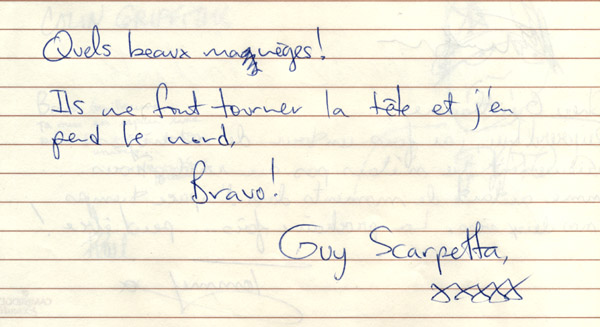 Quels beaux manèges!
Ils me font tourner la tête et j'en
perd le nord,
Bravo!
Guy Scarpetta,
xxxxx